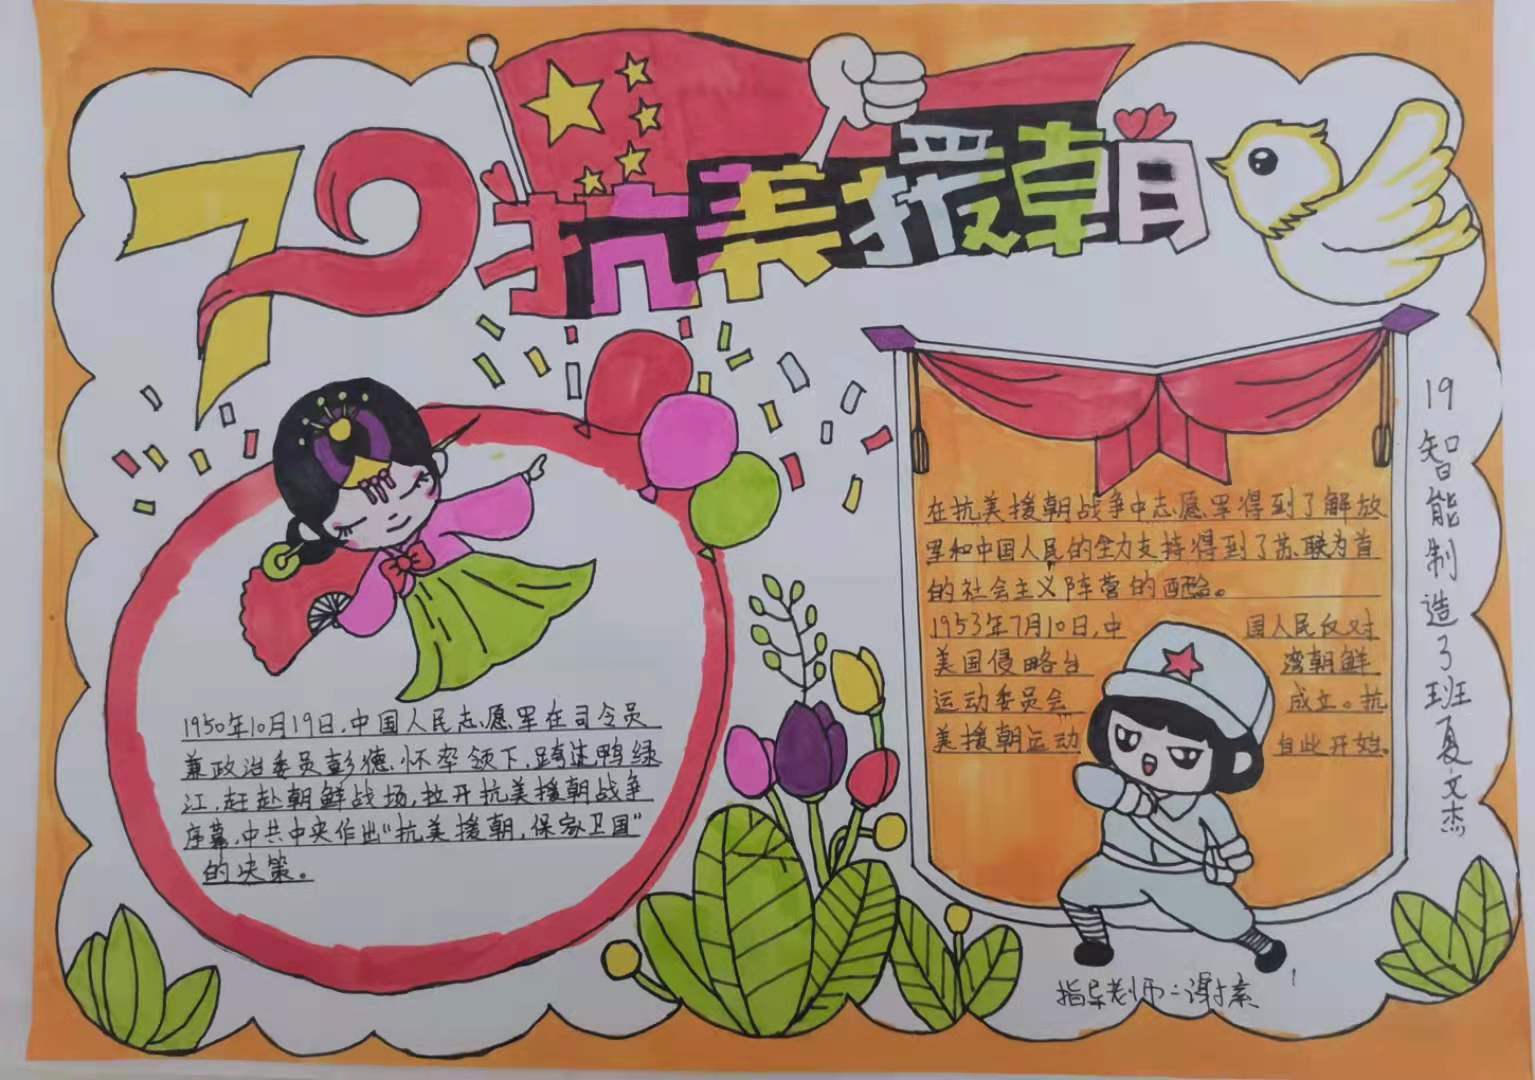 70
抗美援朝
1950年10月19日,中国人民志愿军在司令员
兼政治委员彭德怀率领下,跨过鸭绿
江,赶赴朝鲜战场,拉开抗美援朝战争
序幕,中共中央作出“抗美援朝,保家卫国”
的决策。
在抗美援朝战争中志愿军得到了解放
军和中国人民的全力支持得到了苏联为首
的社会主义阵营的配合。
1953年7月10日,中国人民反对
美国侵略台湾朝鲜
运动委员会成立。抗
美援朝运动自此开始。
19智能制造3班夏文杰
指导老师:谢索